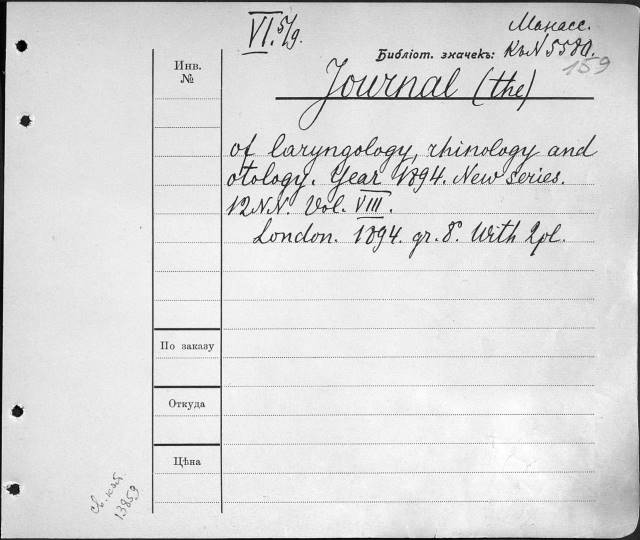 VI.5/9.
Манасс.
Библіот. значекъ: Къ N 5580.
159
Инв.
№
Journal (the)
of laryngology, rhinology and
otology. Year 1894. New series.
12NN. Vol. VIII.
London. 1894. gr. 8°. With 2pl.
По заказу
Откуда
Цѣна
13859